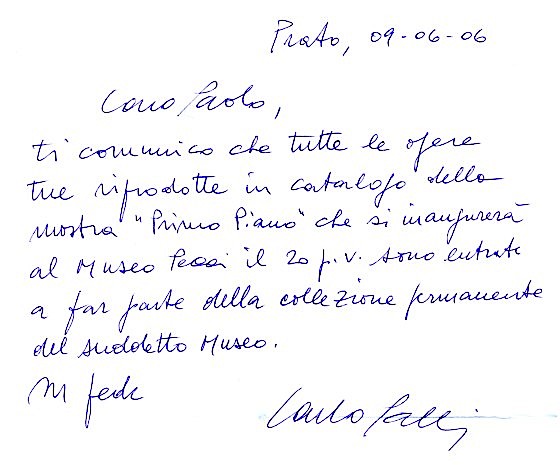 Prato, 09-06-06
Caro Paolo,
ti comunico che tutte le opere
tue riprodotte in catalogo della
mostra "Primo Piano" che si inaugurerà
al Museo Pecci il 20 p.v. sono entrate
a far parte della collezione permanente
del suddetto Museo.
In fede
Carlo